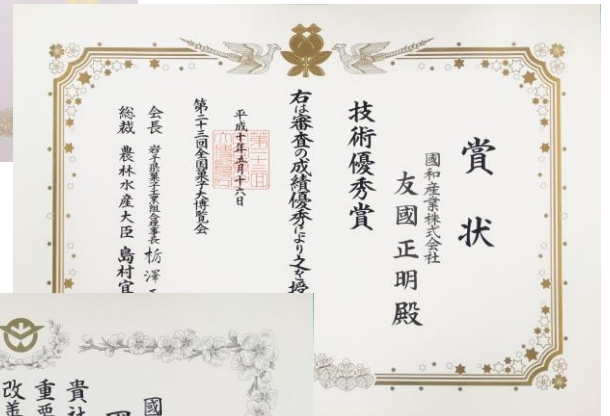 賞状
國和産業株式会社
友國正明殿
技術優秀賞
右は審査の成績優秀により之を授
平成十年五月十六日
第二十三回全国菓子大博覧会
会長 岩手県菓子工業組合理事長 栃澤
総裁 農林水産大臣 島村宜
國
貴社
重要
改善